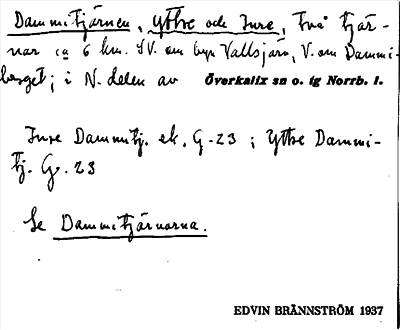 Dammitjärnen, Yttre och Inre, två tjär-
nar ca 6 km. SV. om byn Vallsjärv, V. om Dammi-
berget; i N. delen av Överkalix sn o. tg Norrb. l.
Inre Dammitj. ek. G-23; Yttre Dammi-
tj. G. 23
Se Dammitjärnarna.
EDVIN BRÄNNSTRÖM 1937